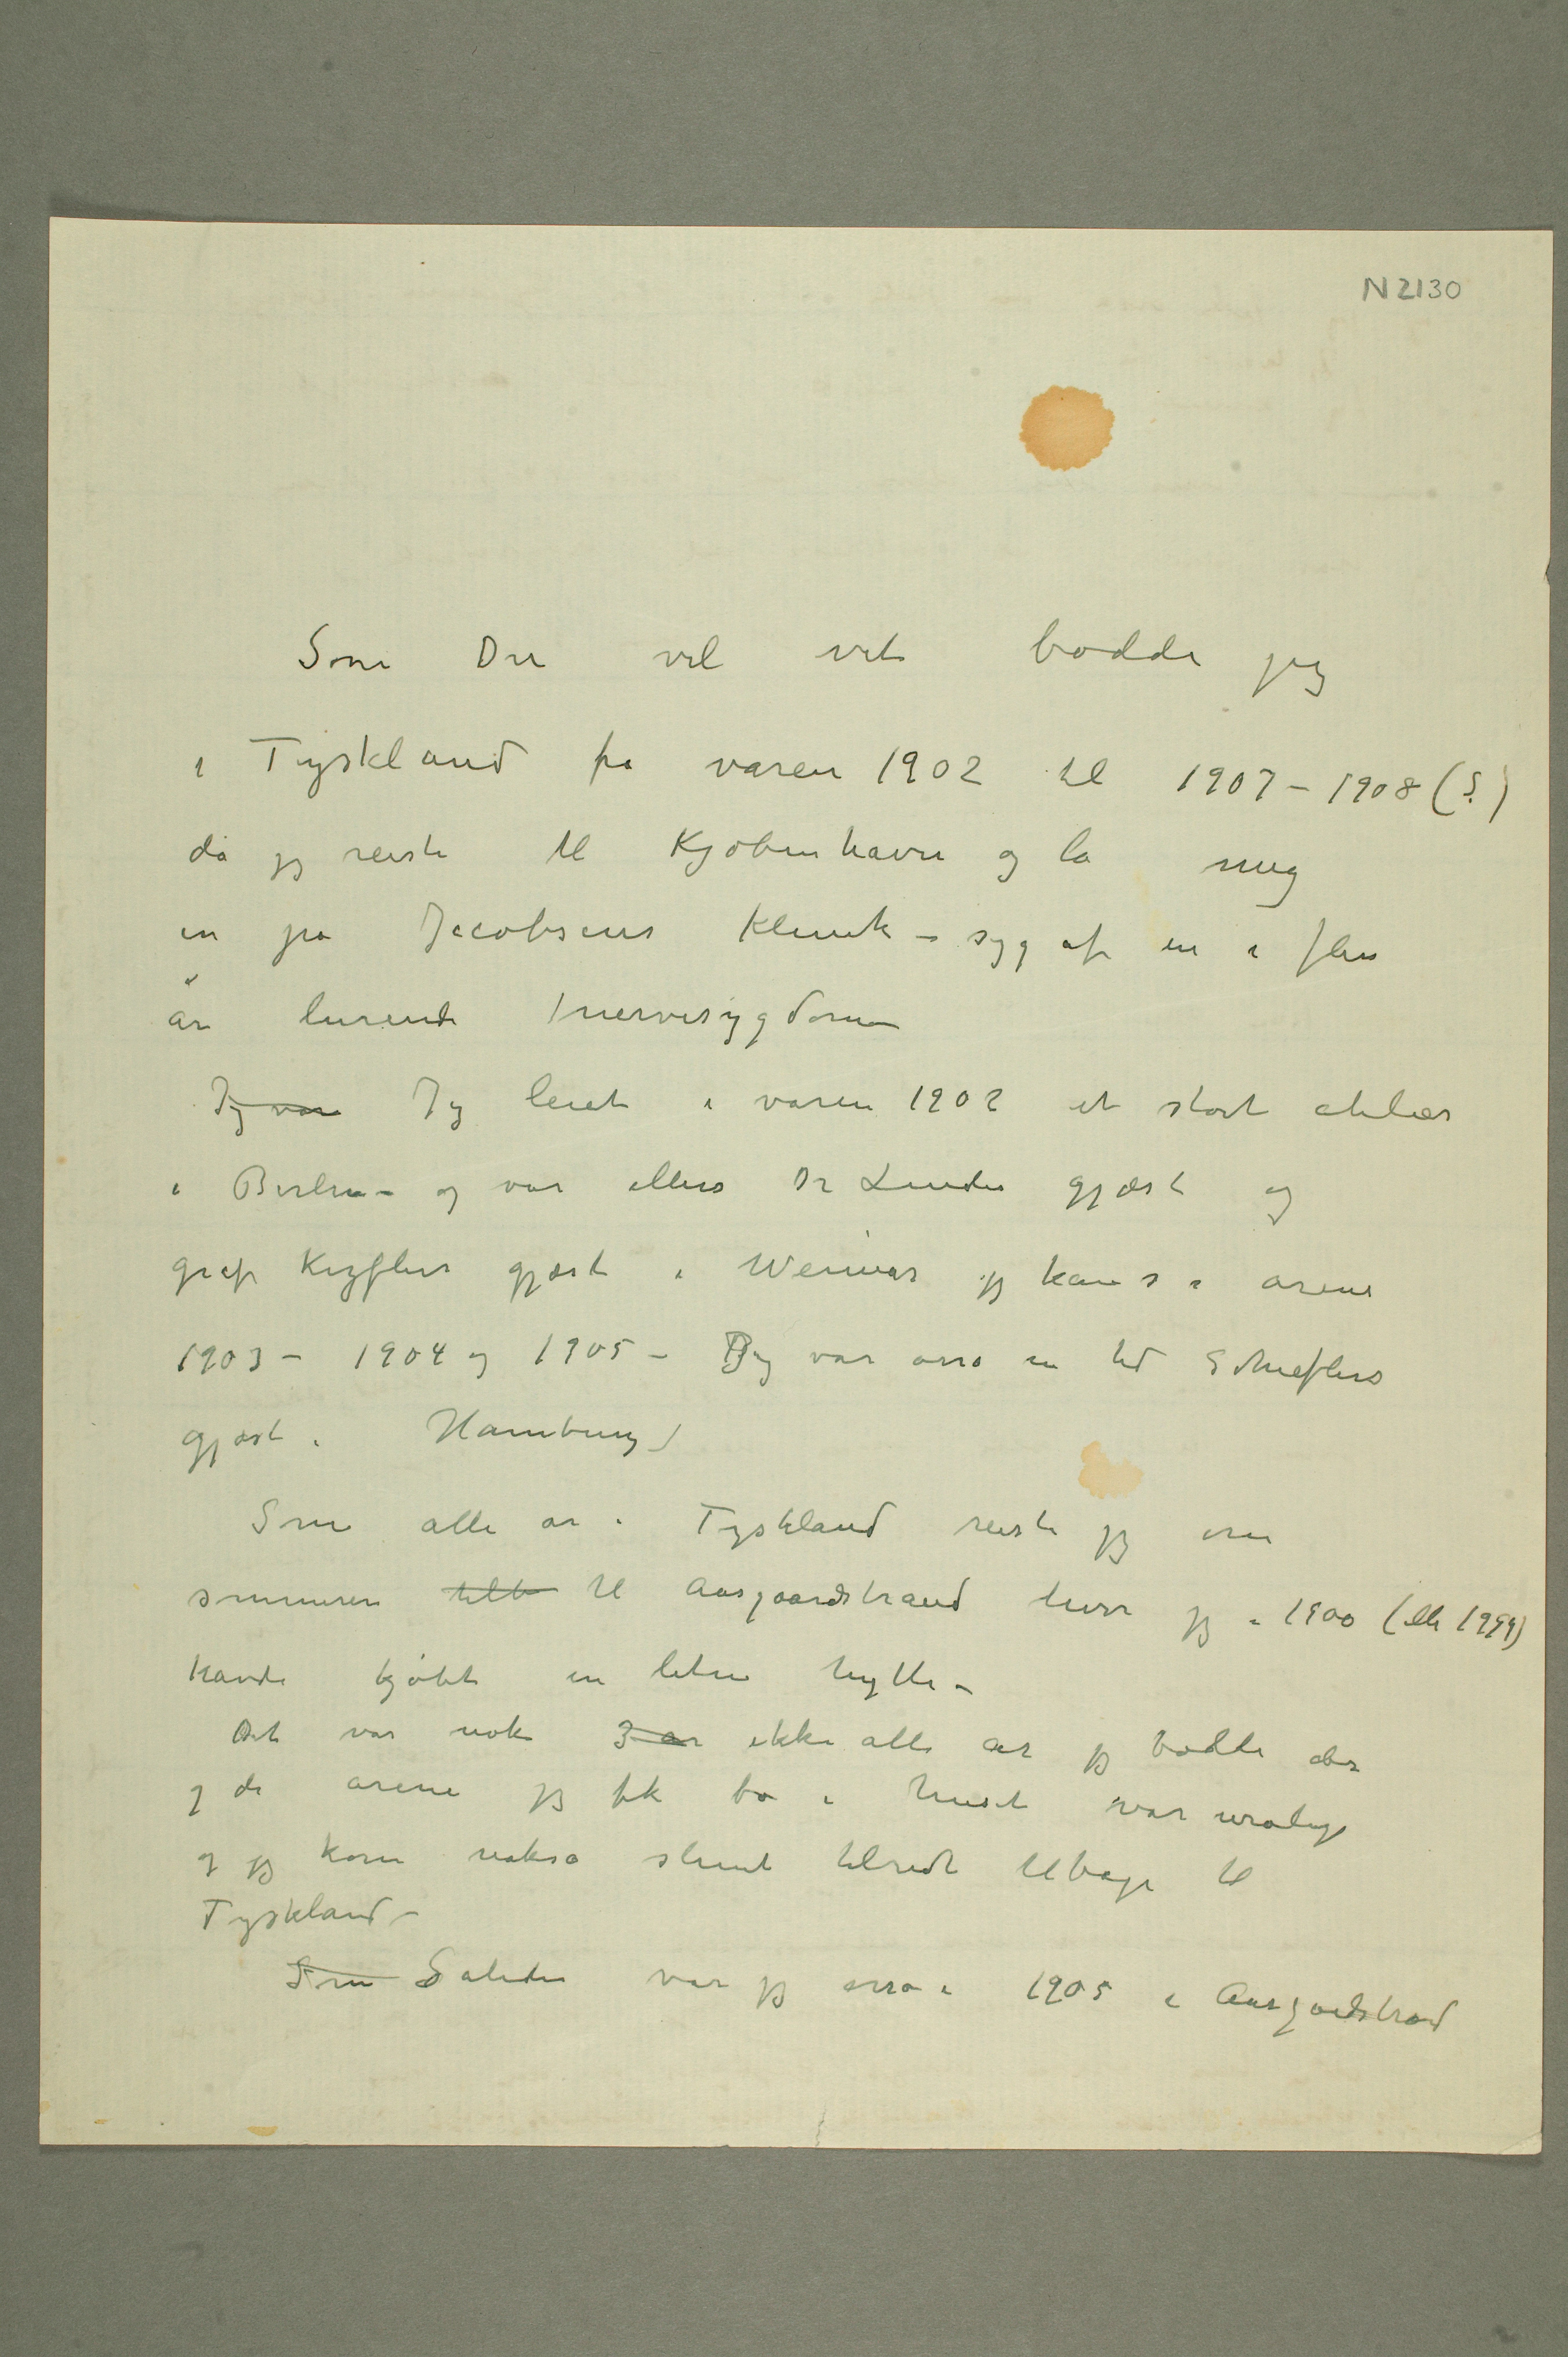 N 2130
Som Du vel vet bodde jeg
i Tyskland fra våren 1902 til 1907 – 1908 (?)
da jeg reiste til Kjøbenhavn og la mig
in på Jacobsens Klinik – syg af en i flere
år lurende nervesygdom
Jeg var Jeg leiet i våren 1902 et stort atelier
i Berlin – og var ellers Dr Lindes gjæst og
graf Kezflers gjæst i Weimar jeg kans i årene
1903 – 1904 og 1905 – Jeg var osså en tid Schieflers
gjæst i Hamburg
Som alle år i Tyskland reiste jeg om
sommeren tilb til Aasgaardstrand hvor jeg i 1900 (eller 1999)
havde kjøbt en liten hytte –
Det var nok 3 år ikke alle år jeg bodde der
og de årene jeg fik bo i huset var urolige
og jeg kom nokså slemt tilredt tilbage til
Tyskland –
Som Således var jeg osså i 1905 i Aasgardstrand